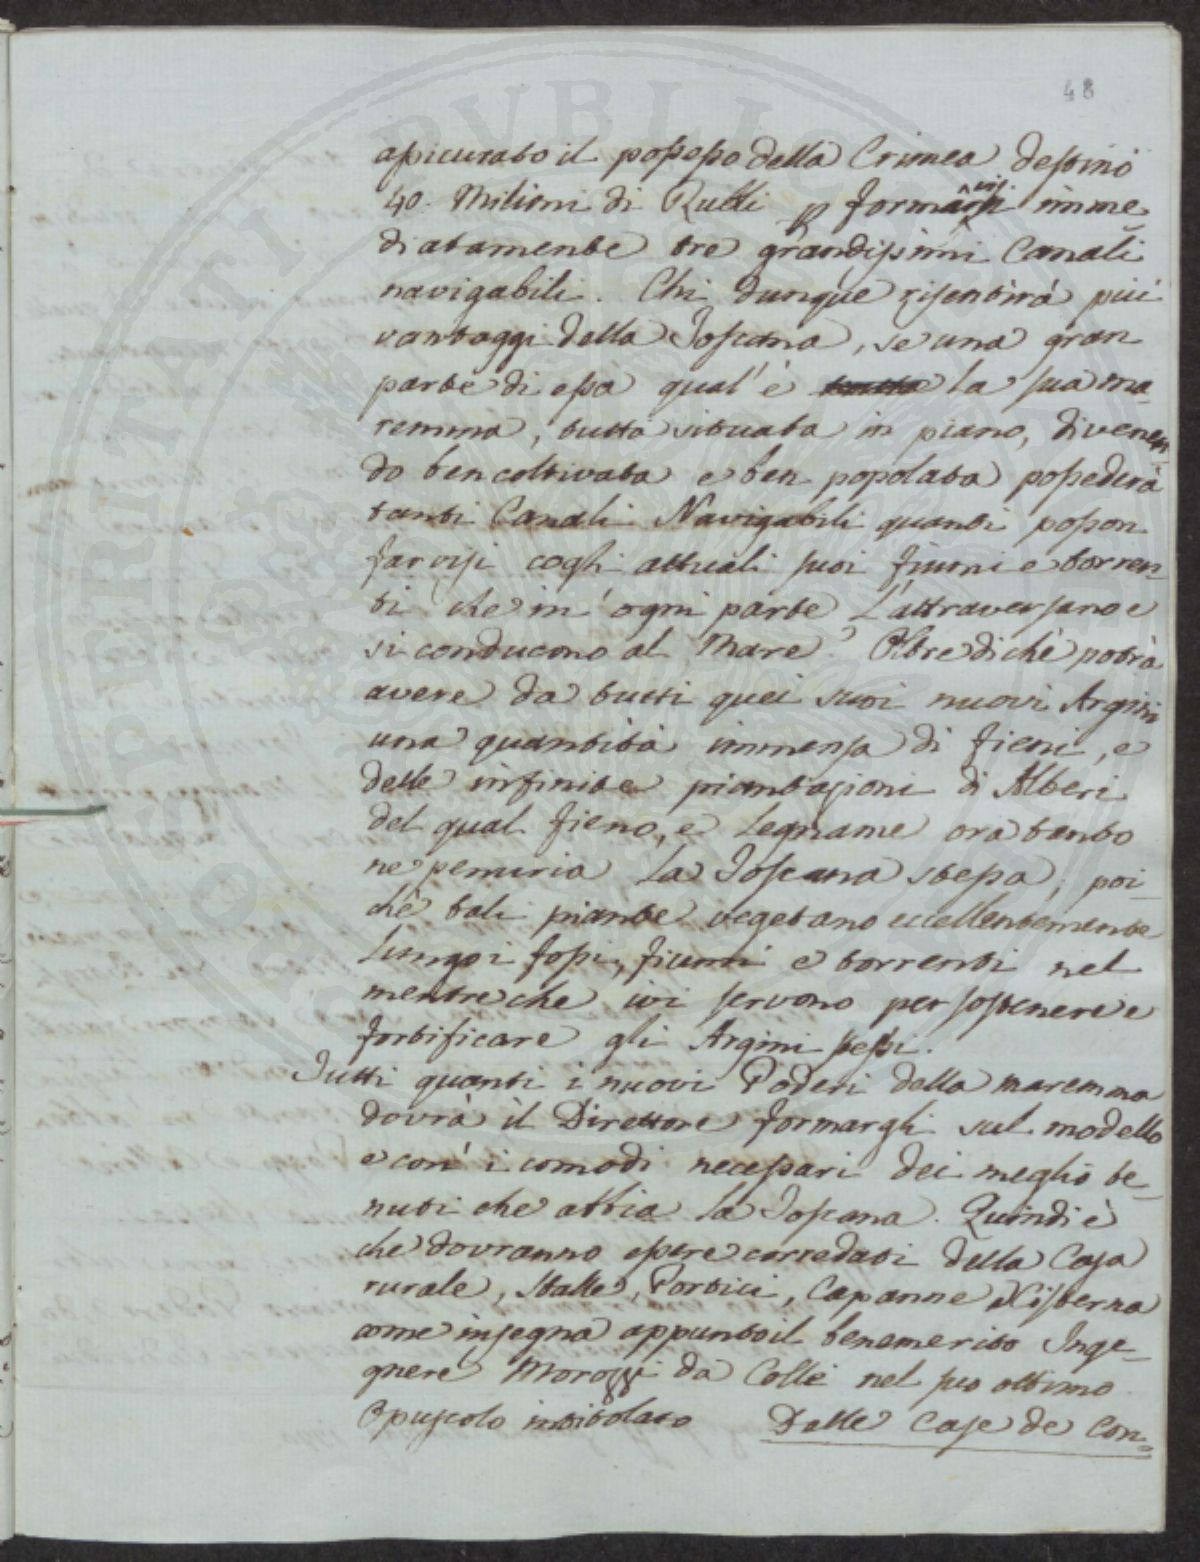 48
assicurato il possesso della Crimea destinò
40. Milioni di Rubli p formarvisi imme
diatamente tre grandissimi Canali
navigabili. Chi dunque risentirà più
vantaggi della Toscana, se una gran
parte di essa qual'è tutta la sua ma-
remma, tutta situata in piano, divenen-
do ben coltivata e ben popolata possederà
tanti Canali Navigabili quanti posson
farvisi cogli attuali suoi fiumi e torren-
ti che in' ogni parte L'attraversano e
si conducono al Mare? Oltre di chè potrà
avere da tutti quei suoi nuovi Argini
una quantità immensa di fieni, e
delle infinite piantagioni di Alberi
del qual fieno, e Legname ora tanto
ne penuria La Toscana stessa; poi-
chè tali piante vegetano eccellentemente
Lungo i fossi, fiumi e torrenti nel
mentre che ivi servono per sostenere e
fortificare gli Argini stessi.
Tutti quanti i nuovi Poderi della maremma
dovrà il Direttore formargli sul modello
e con' i comodi necessari dei meglio te-
nuti che abbia La Toscana. Quindi è
che dovranno essere corredati della Casa
rurale, Stalle, Portici, Capanne e Cisterna
come insegna appunto il benemerito Inge-
gnere Morozzi da Colle nel suo ottimo
Opuscolo intitolato Delle Case de Con=
PUBLICAE PROSPERITATI